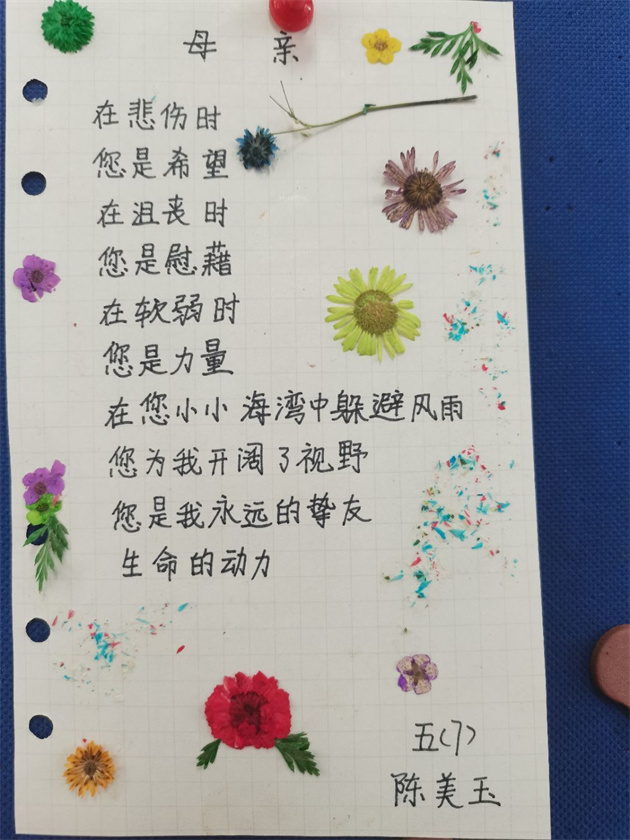 母亲
在悲伤时
您是希望
在沮丧时
您是慰藉
在软弱时
您是力量
在您小小海湾中躲避风雨
您为我开阔了视野
您是我永远的挚友
生命的动力
五(7)
陈美玉